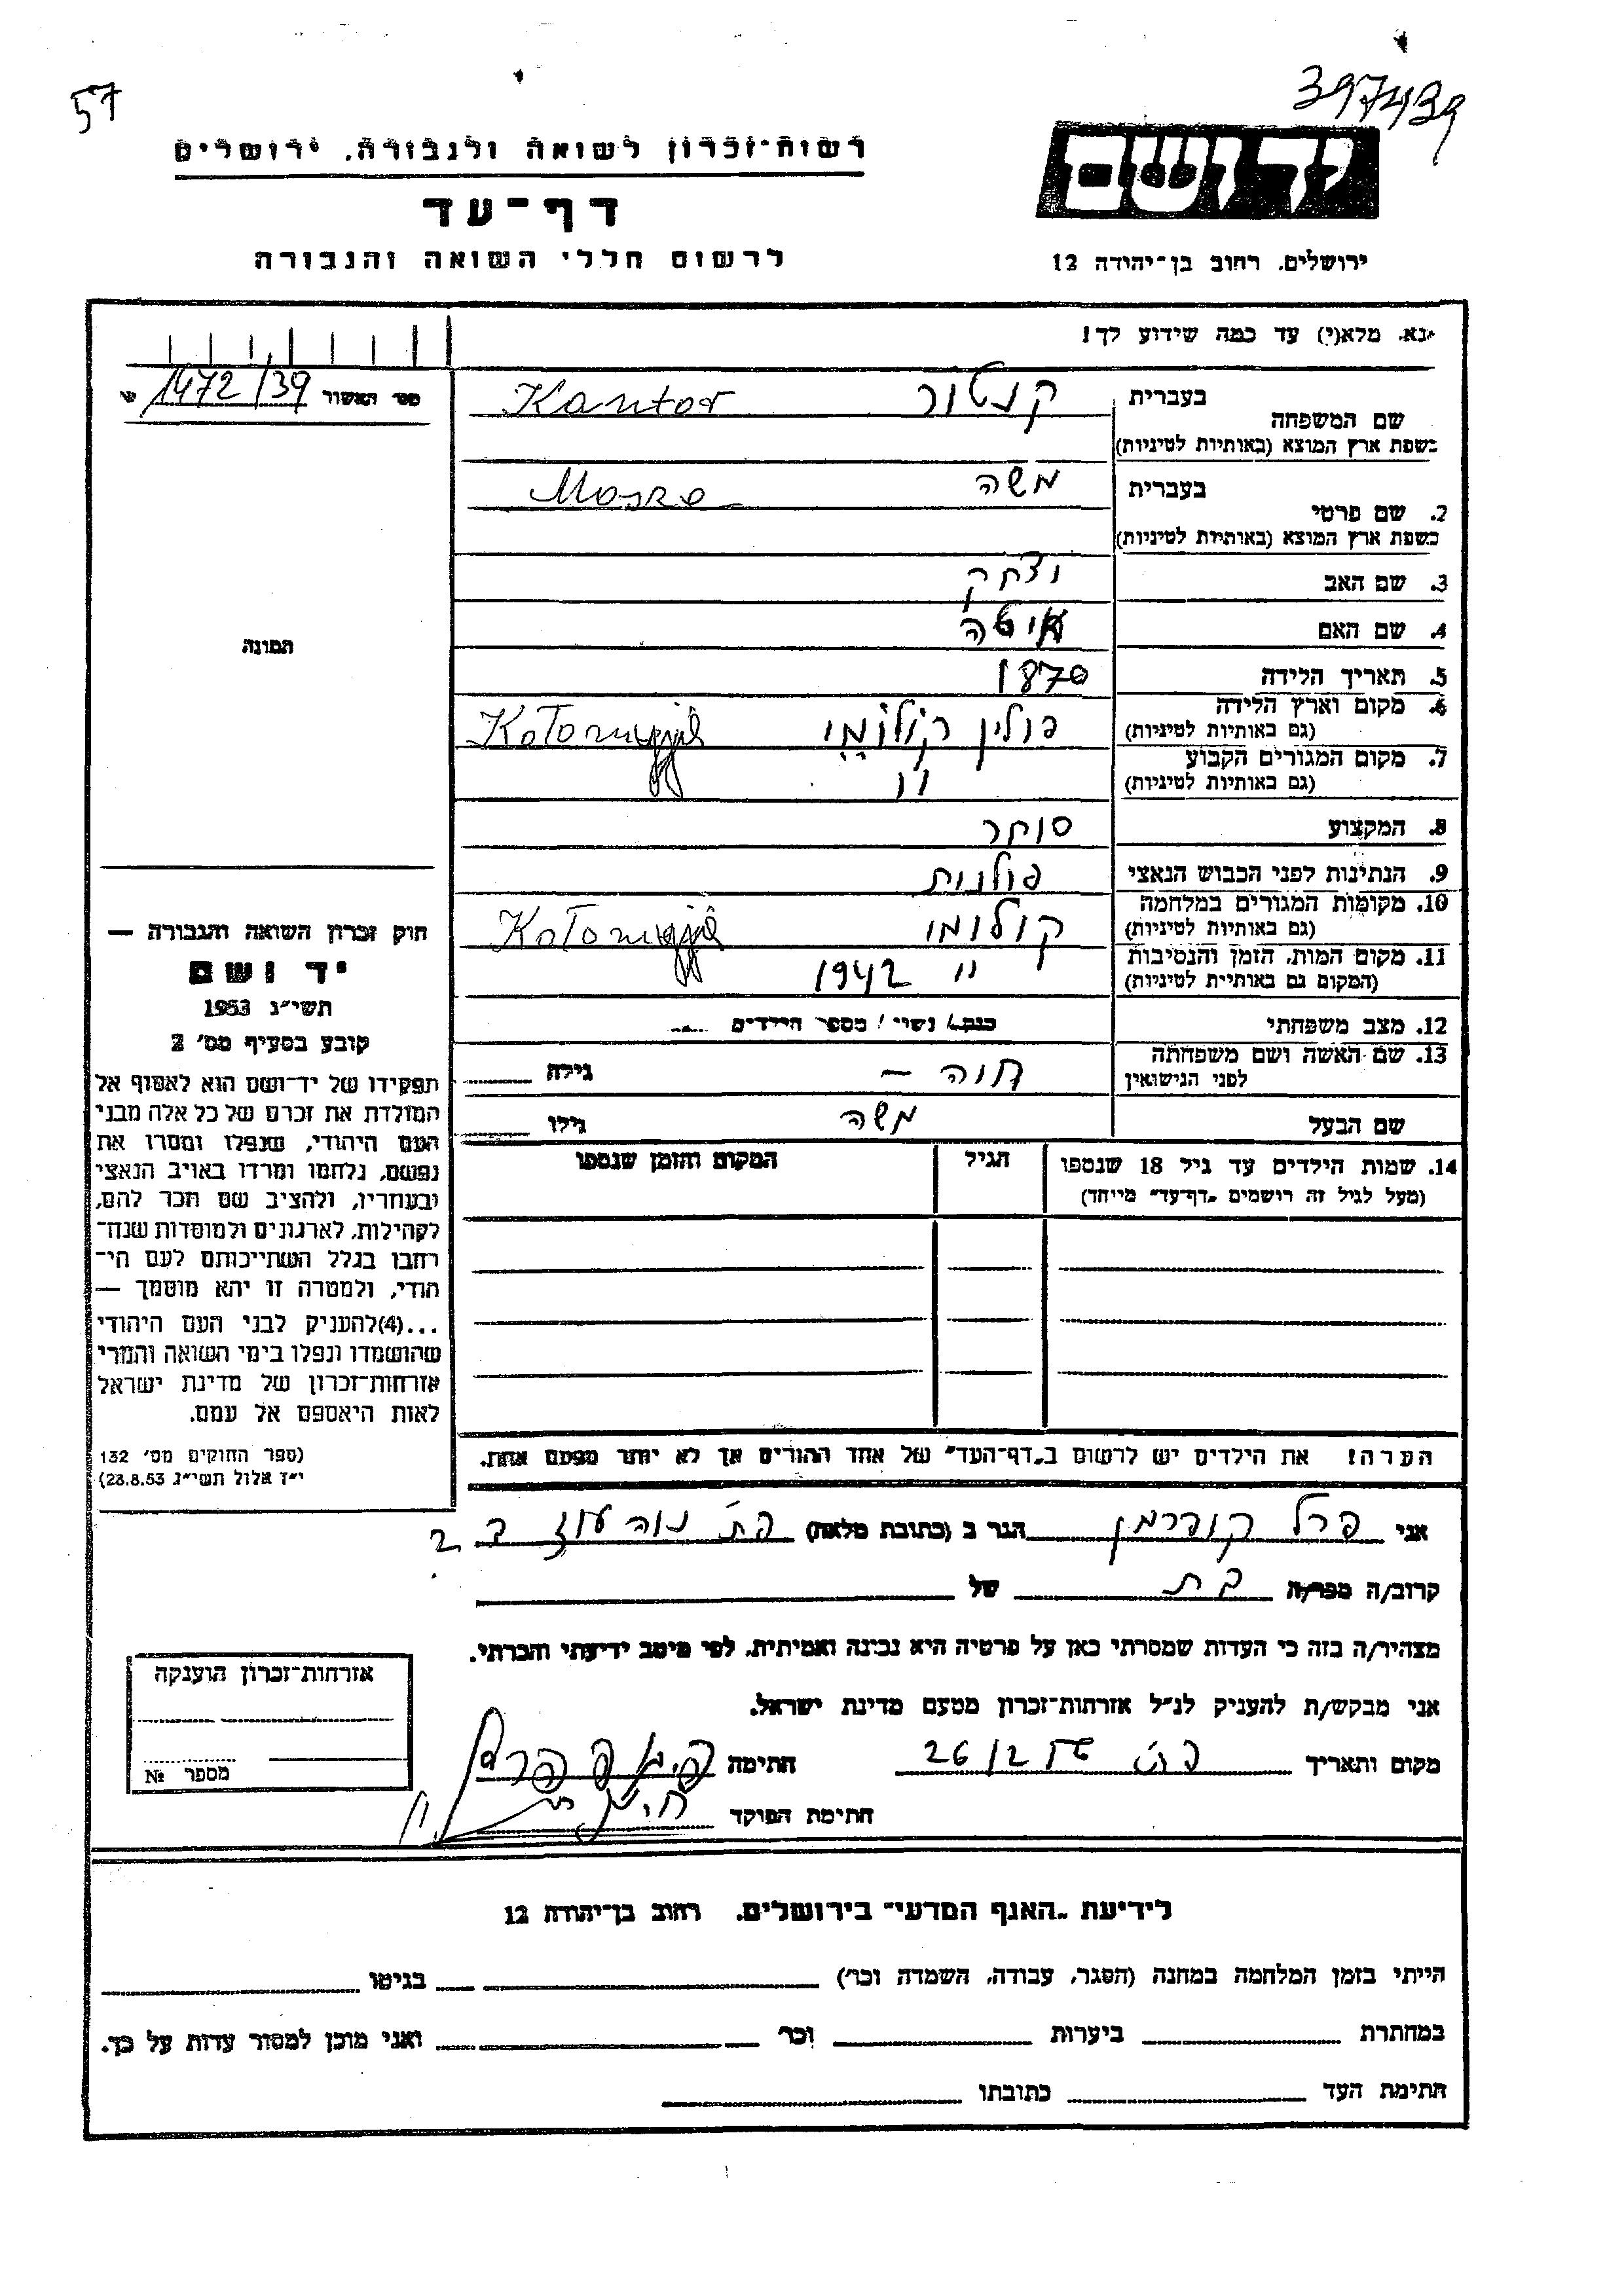 57
397439
יד ושם
רשות־זכרון לשואה ולגבורה, ירושלים
דף־עד
לרשום חללי השואה והגבורה
ירושלים, רחוב בן־יהודה 12
נא, מלא(י) עד כמה שידוע לך!
מס׳ תאשור 1472/39
בעברית קנטור Kantor
שם המשפחה
בשפת ארץ המוצא (באותיות לטיניות)
בעברית משה
2. שם פרטי
בשפת ארץ המוצא (באותיות לטיניות)
3. שם האב יצחק
4. שם האם איטה
תמונה
5. תאריך הלידה 1870
6. מקום וארץ הלידה פולין קולומי
(גם באותיות לטיניות)
7. מקום המגורים הקבוע "
(גם באותיות לטיניות)
8. המקצוע סוחר
9. הנתינות לפני הכבוש הנאצי פולנית
10. מקומות המגורים במלחמה קולומי
(גם באותיות לטיניות)
11. מקום המות, הזמן והנסיבות " 1942
(המקום גם באותיות לטיניות)
12. מצב משפחתי רווק / נשוי / מספר הילדים
13. שם האשה ושם משפחתה חוה – גילה
לפני הנישואין
שם הבעל משה גילו
14. שמות הילדים עד גיל 18 שנספו הגיל המקום והזמן שנספו
(מעל לגיל זה רושמים „דף־עד" מייחד)
הערה! את הילדים יש לרשום ב„דף־העד" של אחד ההורים אך לא יותר מפעם אחת.
חוק זכרון השואה והגבורה —
יד ושם
תשי״ג 1953
קובע בסעיף מס׳ 2
תפקידו של יד־ושם הוא לאסוף אל
המולדת את זכרם של כל אלה מבני
העם היהודי, שנפלו ומסרו את
נפשם, נלחמו ומרדו באויב הנאצי
ובעוזריו, ולהציב שם וזכר להם,
לקהילות, לארגונים ולמוסדות שנח־
רבו בגלל השתייכותם לעם הי־
הודי, ולמטרה זו יהא מוסמך —
...(4)להעניק לבני העם היהודי
שהושמדו ונפלו בימי השואה והמרי
אזרחות־זכרון של מדינת ישראל
לאות היאספם אל עמם.
(ספר החוקים מס׳ 132
י״ז אלול תשי״ג 28.8.53)
אני פרל קודרמן הגר ב (כתובת מלאה) פ״ת נוה עוז
קרוב/ה מכר/ה בת של
מצהיר/ה בזה כי העדות שמסרתי כאן על פרטיה היא נכונה ואמיתית, לפי מיטב ידיעתי והכרתי.
אני מבקש/ת להעניק לנ״ל אזרחות־זכרון מטעם מדינת ישראל.
מקום ותאריך פ״ת 26/2 חתימה
חתימת הפוקד
אזרחות־זכרון הוענקה
מספר №
לידיעת „האגף המדעי" בירושלים, רחוב בן־יהודה 12
הייתי בזמן המלחמה במחנה (הסגר, עבודה, השמדה וכר׳) בגיטו
במחתרת ביערות וכר׳ ואני מוכן למסור עדות על כך.
חתימת העד כתובתו